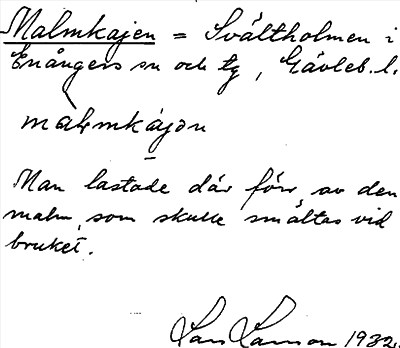 Malmkajen = Svältholmen i
Enångers sn och tg, Gävleb. l.
malmkajən
Man lastade där förr av den
malm, som skulle smältas vid
bruket.
Lars Larsson 1932.